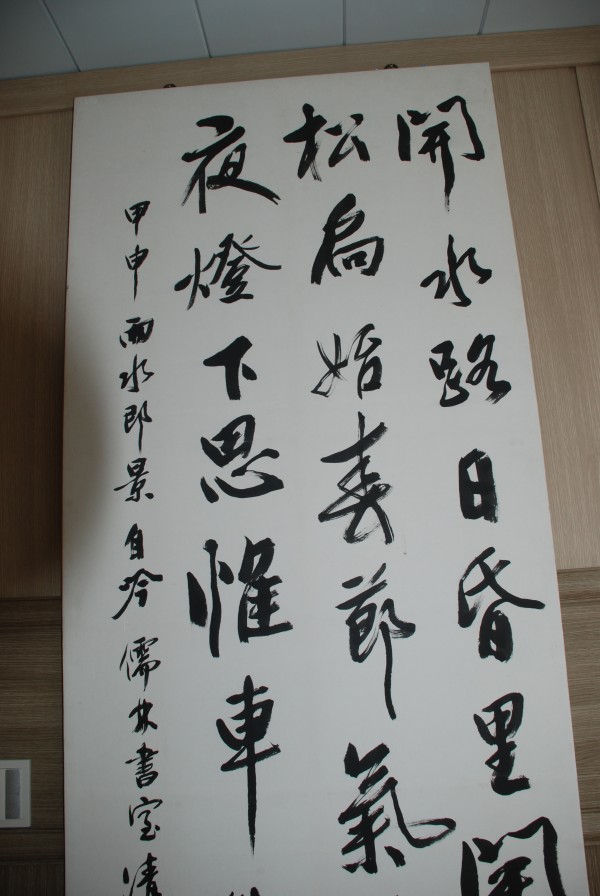 開水路日昏里
松扃始春節氣
夜燈下思惟車
甲申雨水即景自吟 儒林書室清